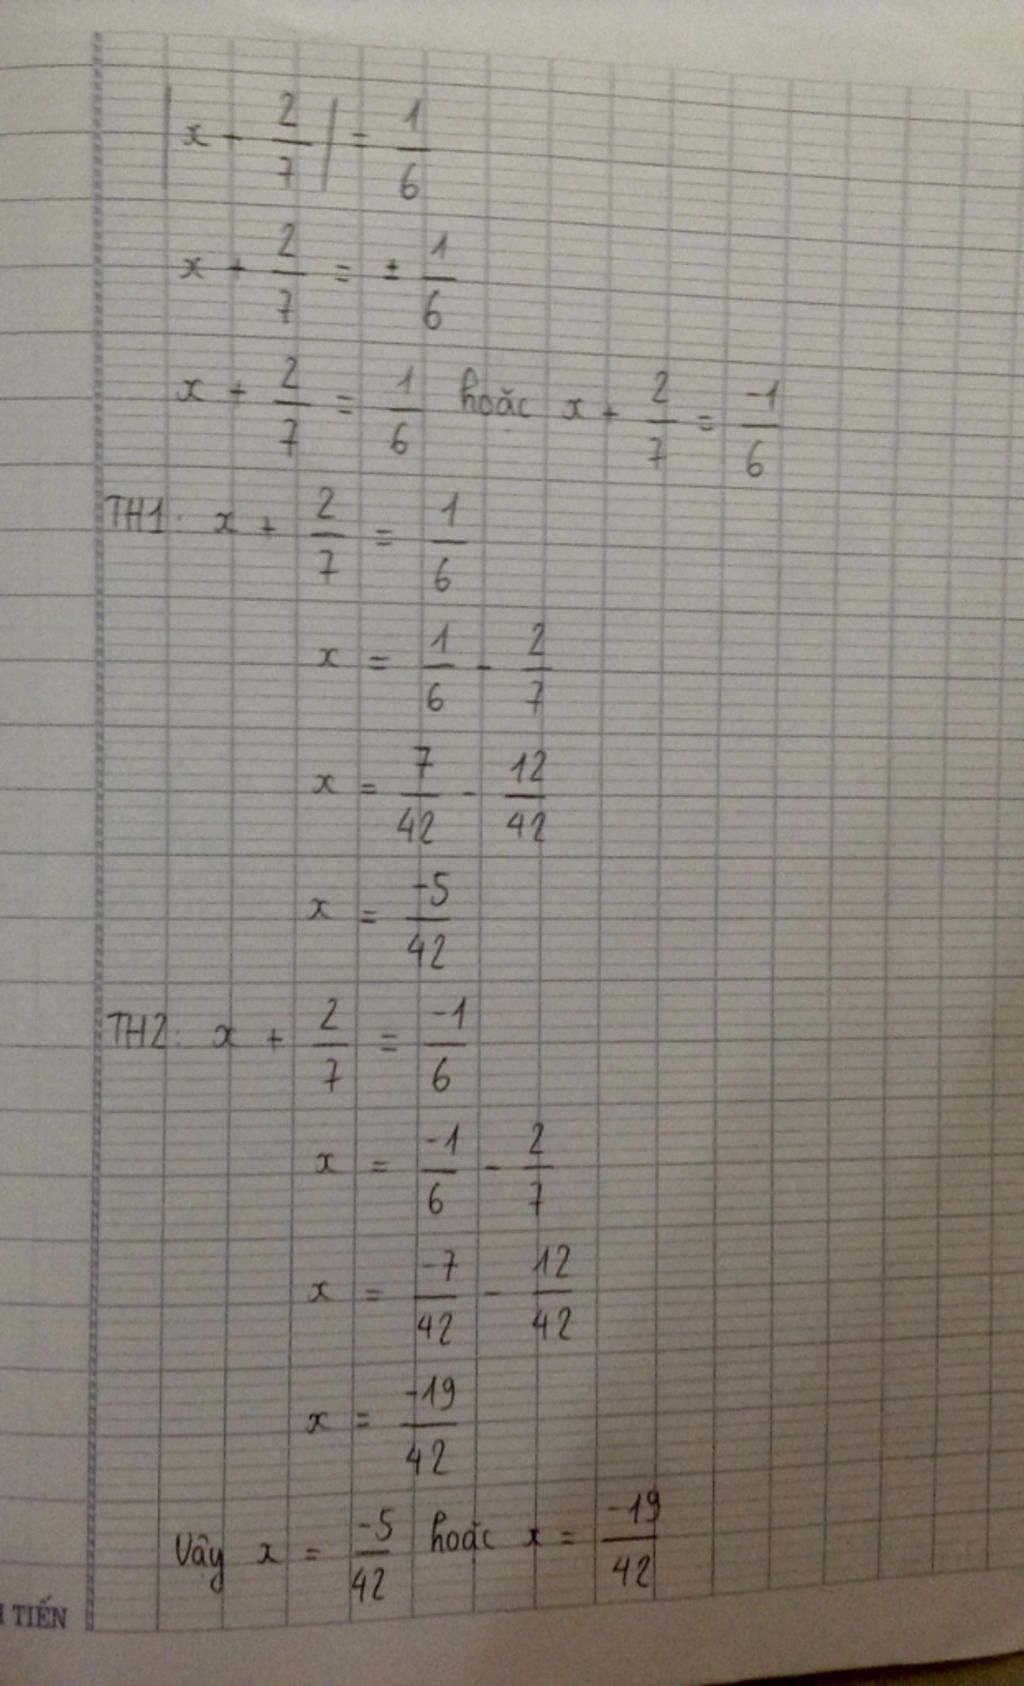 |x + 2/7| = 1/6
x + 2/7 = ± 1/6
x + 2/7 = 1/6 hoặc x + 2/7 = -1/6
TH1: x + 2/7 = 1/6
x = 1/6 - 2/7
x = 7/42 - 12/42
x = -5/42
TH2: x + 2/7 = -1/6
x = -1/6 - 2/7
x = -7/42 - 12/42
x = -19/42
Vậy x = -5/42 hoặc x = -19/42
TIẾN